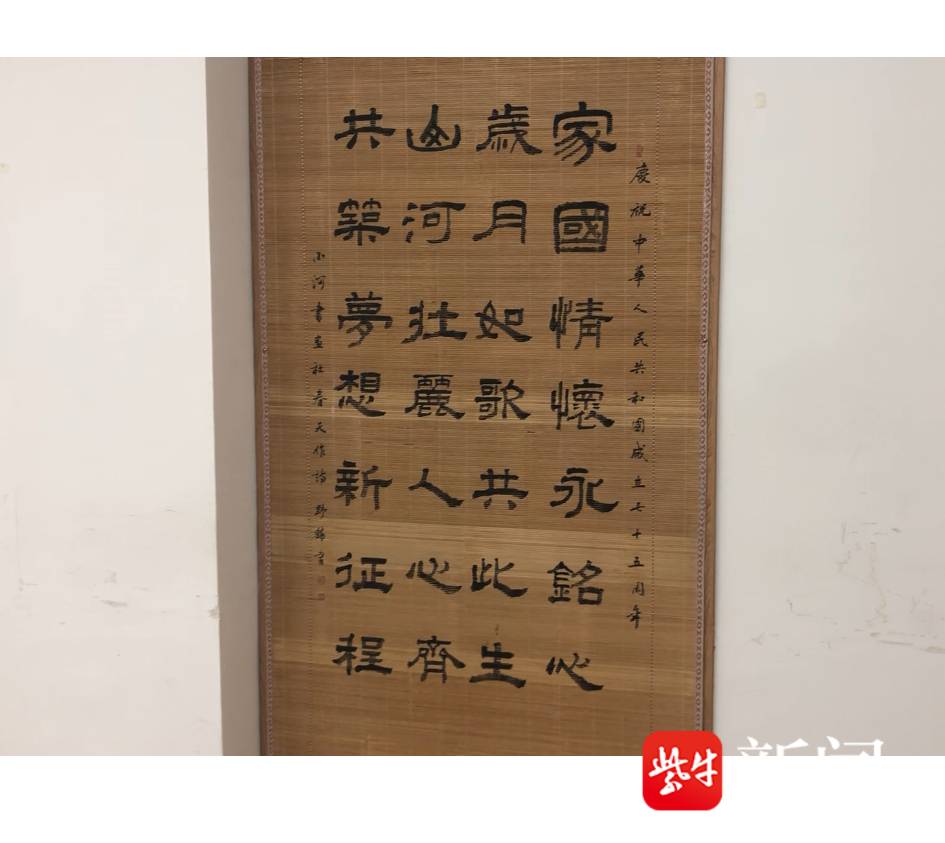 慶祝中華人民共和國成立七十五周年
家國情懷永銘心
歲月如歌共此生
山河壯麗人心齊
共築夢想新征程
小河書画社春天作詩
紫牛
新闻